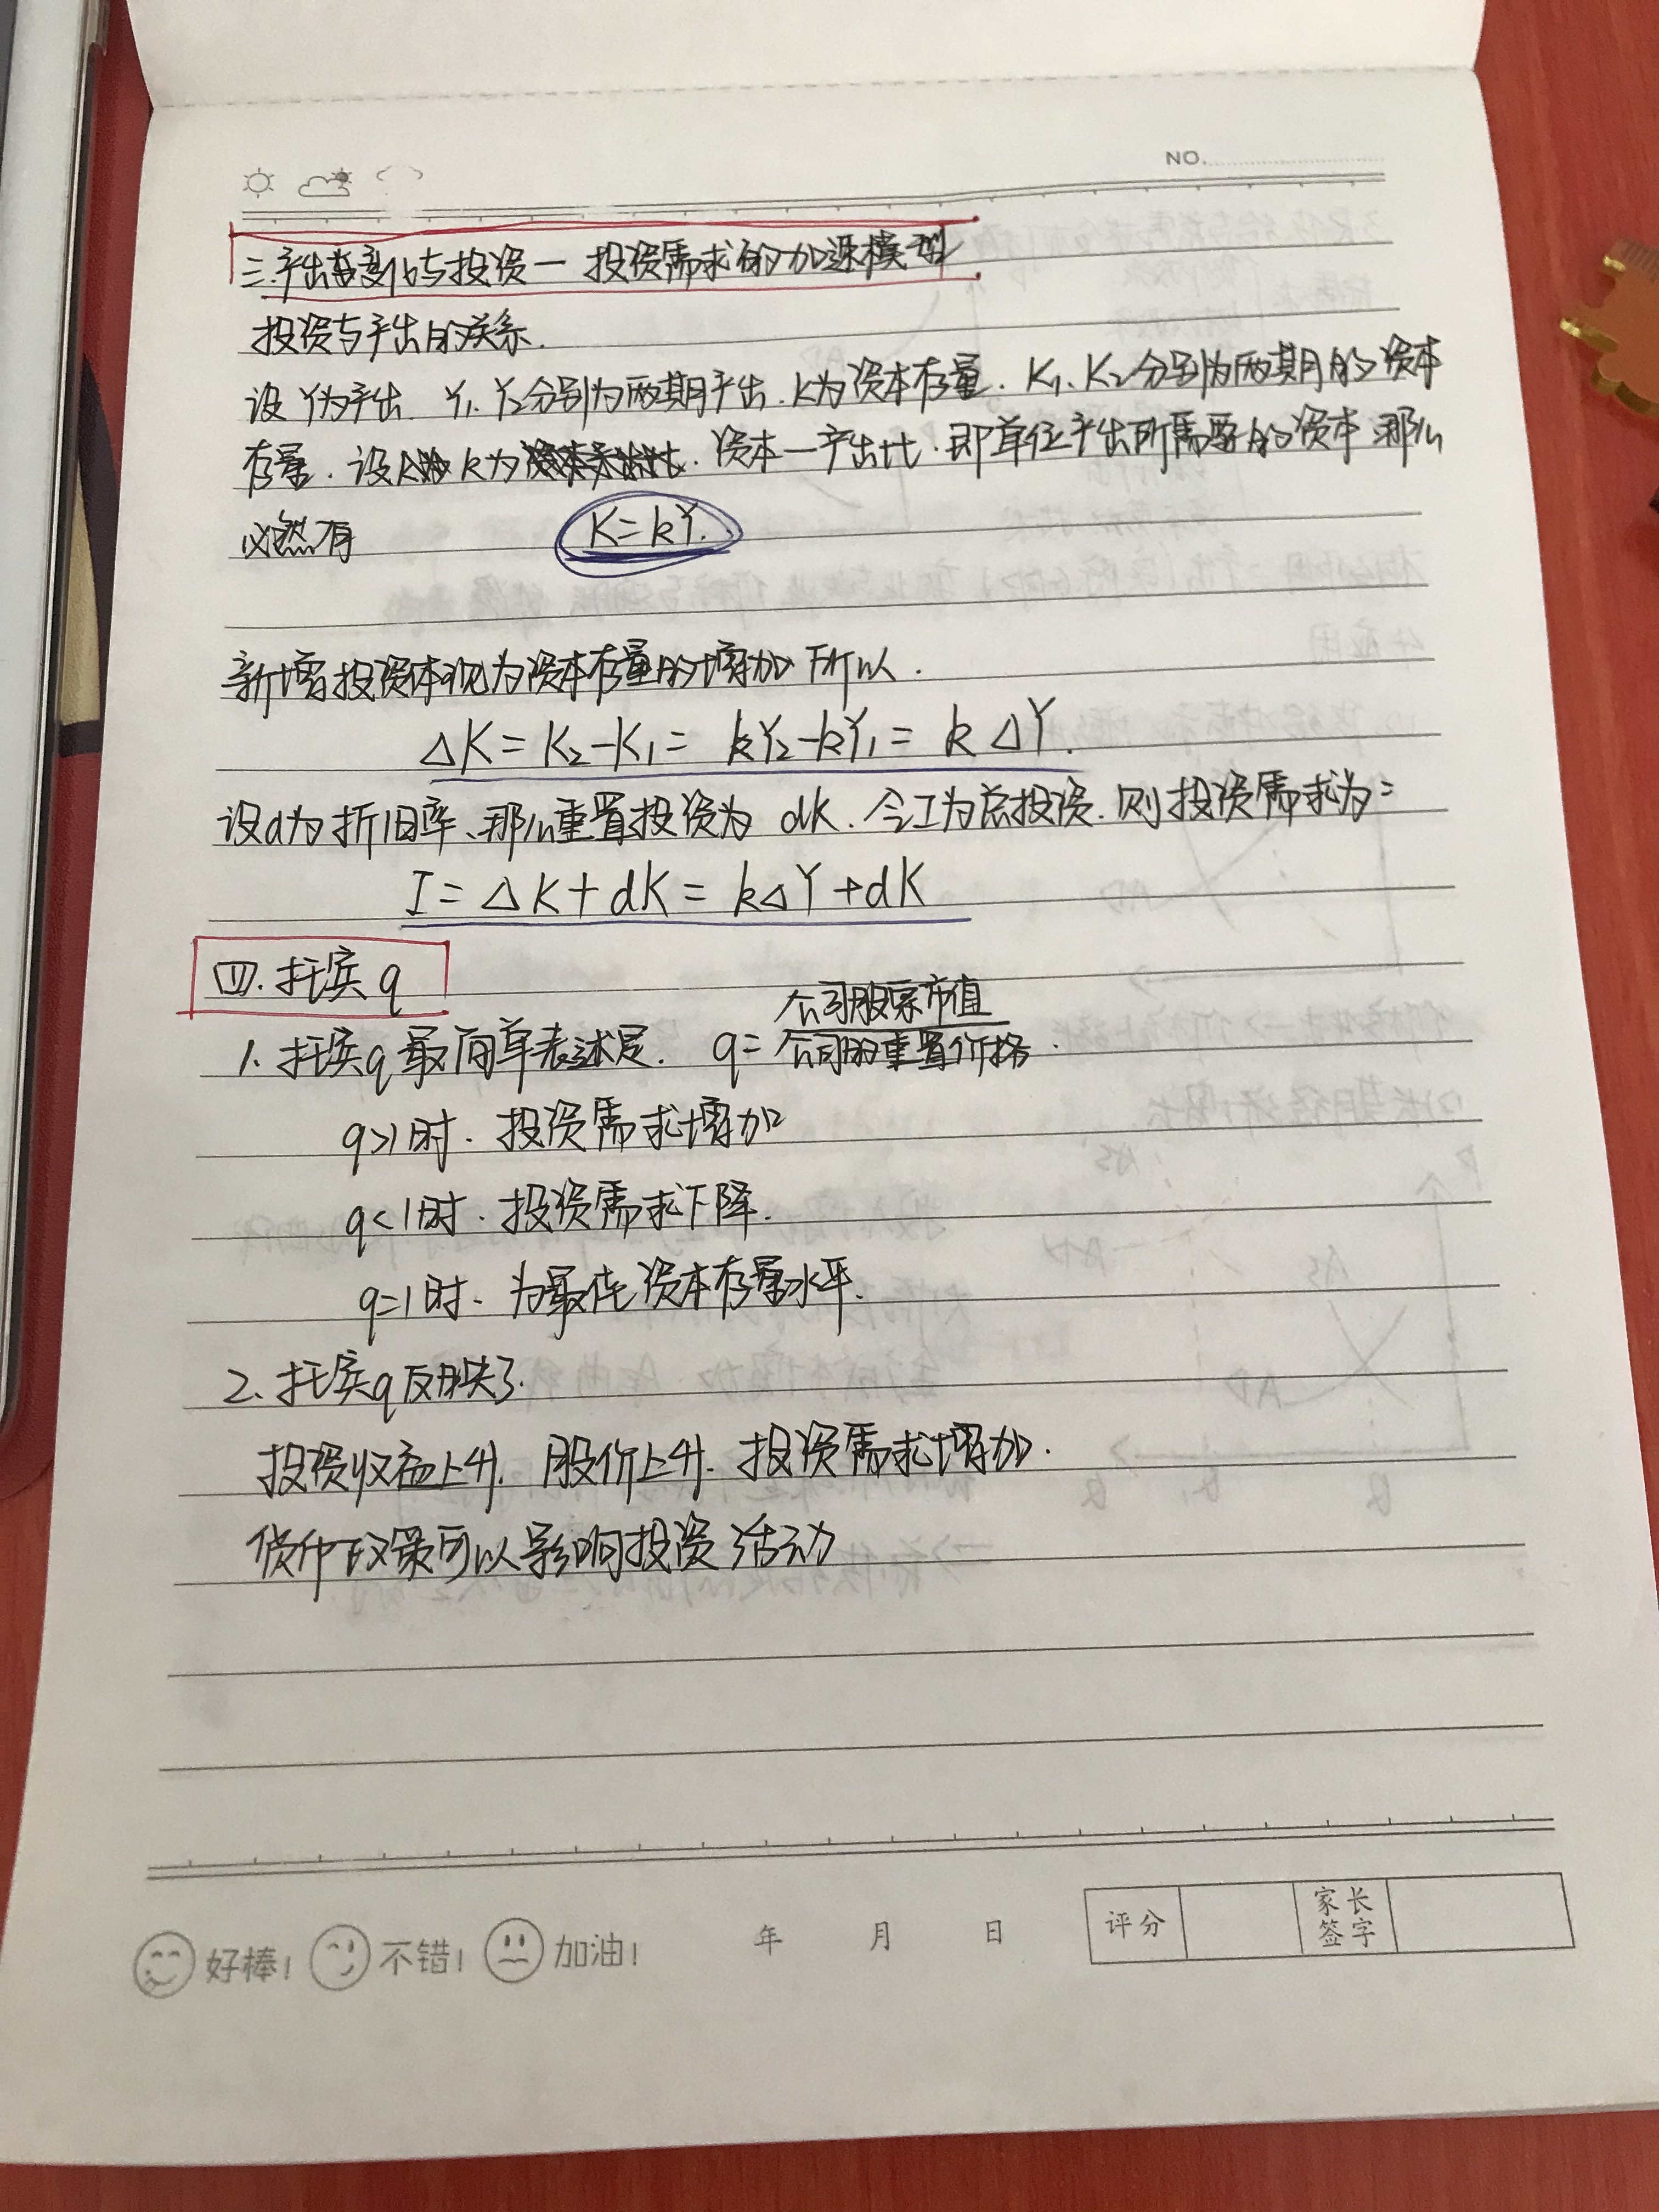 NO.
三.产出变化与投资一 投资需求的加速模型
投资与产出的关系.
设Y为产出. Y₁. Y₂分别为两期产出. K为资本存量. K₁、K₂分别为两期的资本
存量. 设 k为 资本一产出比. 即单位产出所需要的资本 那么
必然有 K=kY.
新增投资体现为资本存量的增加 所以.
△K=K₂-K₁= kY₂-kY₁= k△Y.
设d为折旧率、那么重置投资为 dK. 令I为总投资. 则投资需求为:
I=△K+dK=k△Y+dK
四.托宾q
1. 托宾q最简单表述是. q= 公司股票市值
公司的重置价格.
q>1时. 投资需求增加
q<1时. 投资需求下降.
q=1时. 为最佳资本存量水平.
2. 托宾q反映了.
投资收益上升. 股价上升. 投资需求增加.
货币政策可以影响投资活动
好棒! 不错! 加油! 年 月 日 评分 家长签字